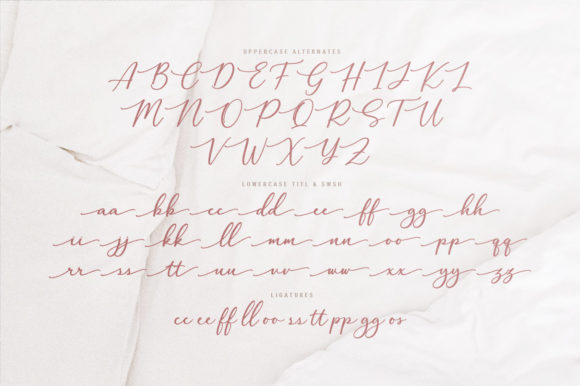 UPPERCASE ALTERNATES
A B C D E F G H I J K L
M N O P Q R S T U
V W X Y Z
LOWERCASE TITL & SWSH
aa bb cc dd ee ff gg hh
ii jj kk ll mm nn oo pp qq
rr ss tt uu vv ww xx yy zz
LIGATURES
cc ee ff ll oo ss tt pp gg os